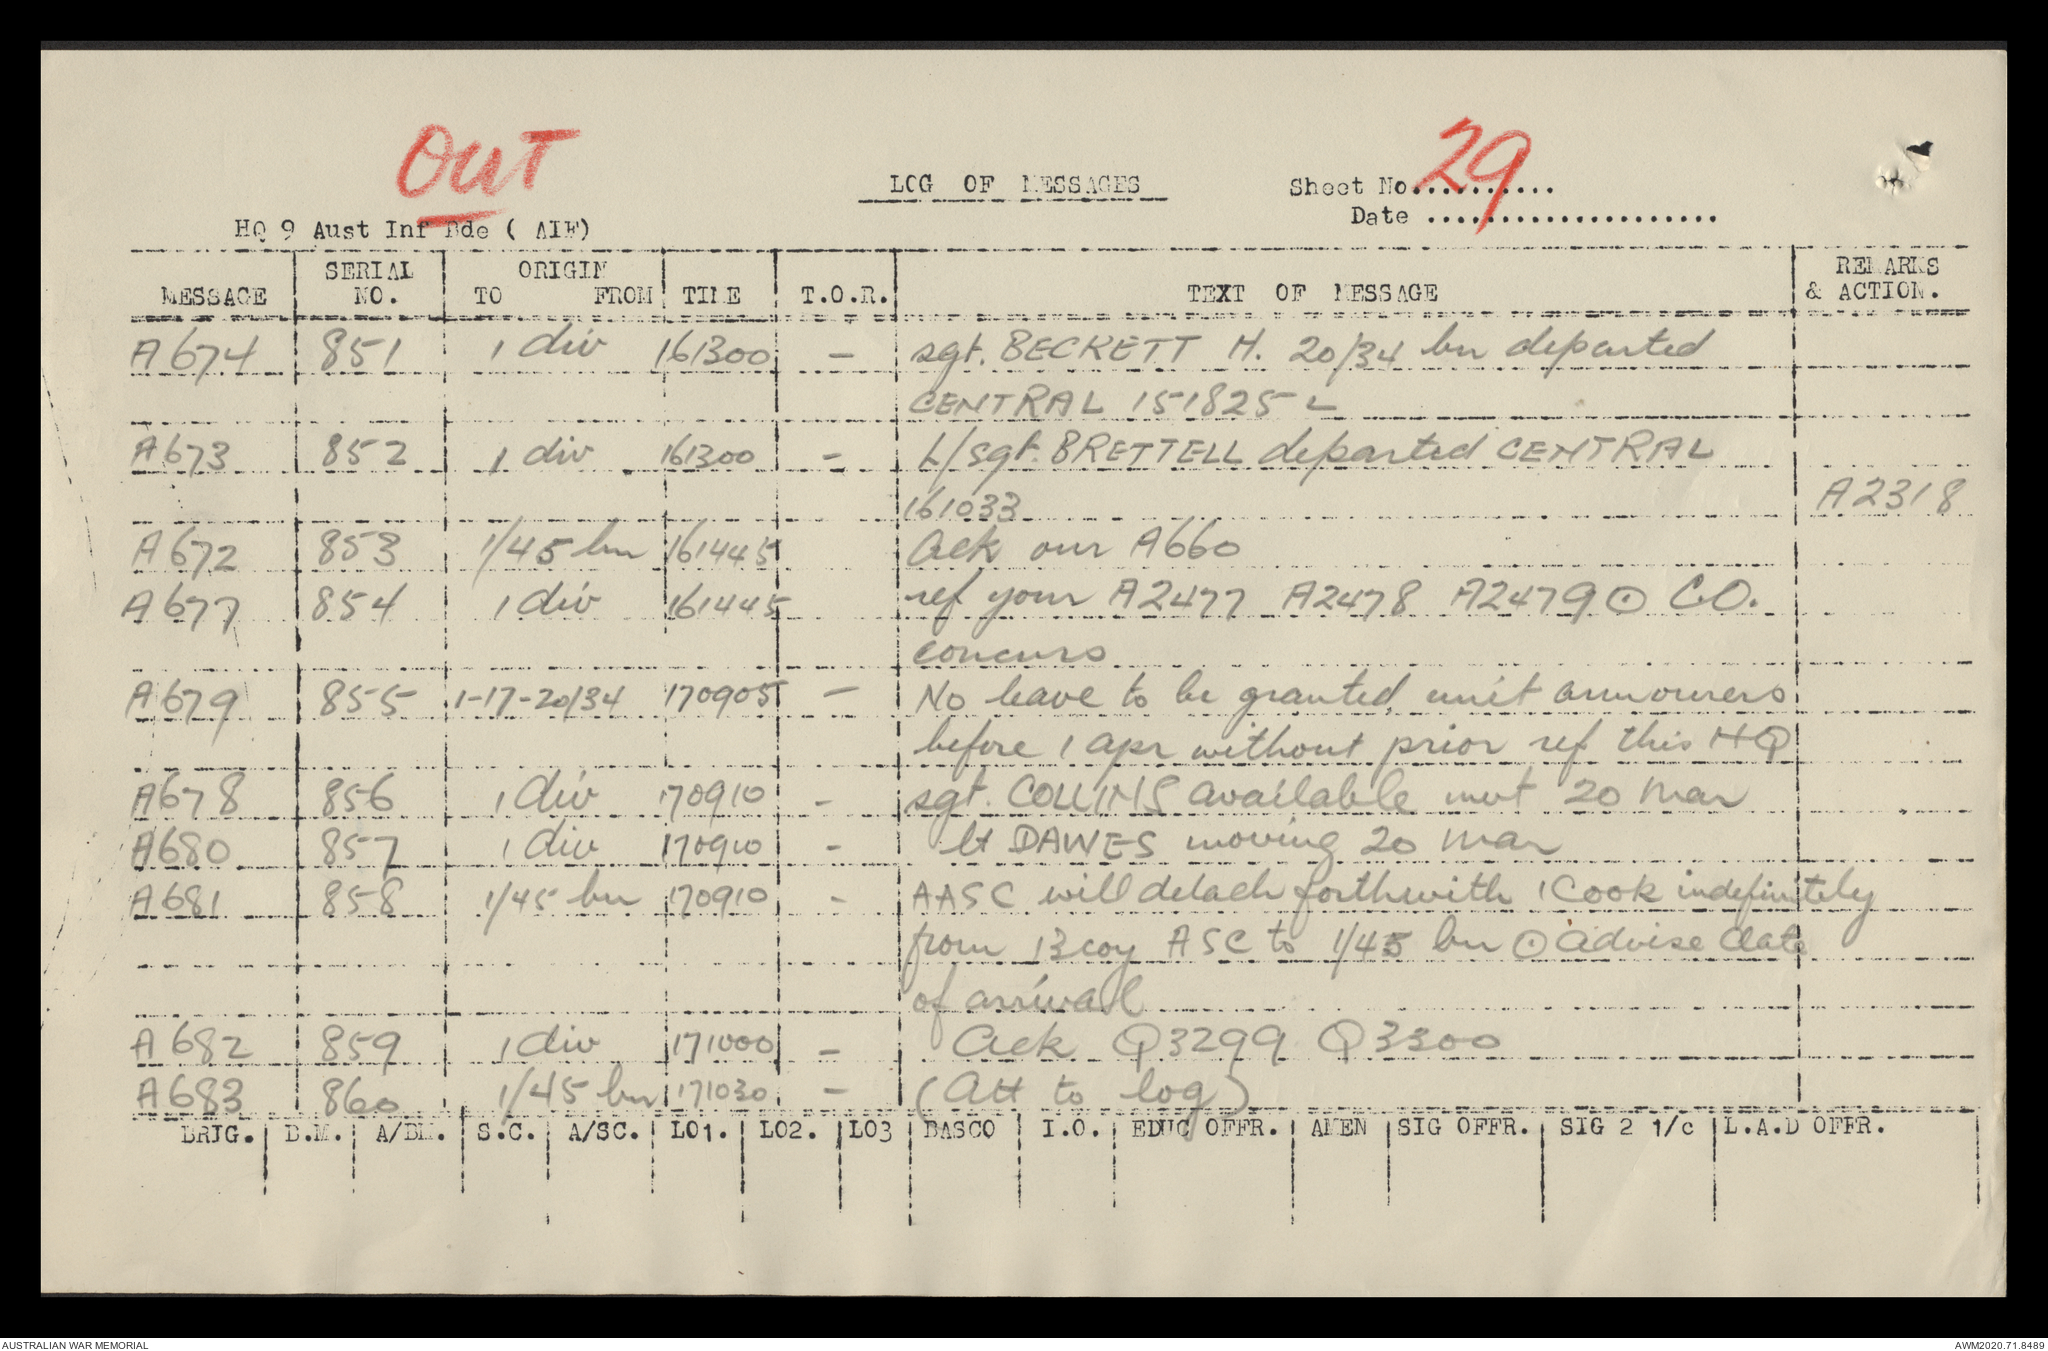 OUT
LOG OF MESSAGES
Sheet No..........29
Date ....................
HQ 9 Aust Inf Bde ( AIF)
MESSAGE SERIAL NO. ORIGIN TO FROM TIME T.O.R. TEXT OF MESSAGE REMARKS & ACTION.
A674 851 1 div 161300 - sgt. BECKETT H. 20/34 bn departed
CENTRAL 151825 L
A673 852 1 div 161300 - L/sgt. BRETTELL departed CENTRAL
161033 A2318
A672 853 1/45 bn 161445 Ack our A660
A677 854 1 div 161445 ref your A2477 A2478 A2479 ⊙ C.O.
concurs
A679 855 1-17-20/34 170905 - No leave to be granted unit armourers
before 1 apr without prior ref this HQ
A678 856 1 div 170910 - sgt. COLLINS available mvt 20 mar
A680 857 1 div 170910 - lt DAWES moving 20 mar
A681 858 1/45 bn 170910 - AASC will detach forthwith 1 Cook indefinitely
from 13 coy ASC to 1/45 bn ⊙ advise date
of arrival
A682 859 1 div 171000 - Ack Q3299 Q3300
A683 860 1/45 bn 171030 - (Att to log)
BRIG. B.M. A/BM. S.C. A/SC. LO1. LO2. LO3 BASCO I.O. EDUC OFFR. AMEN SIG OFFR. SIG 2 1/c L.A.D OFFR.
AUSTRALIAN WAR MEMORIAL
AWM2020.71.8489